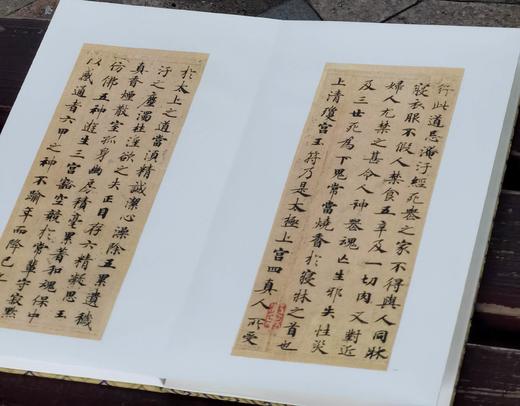 行此道忌淹汙經死喪之家不得與人同牀
寢衣服不假人禁食五辛及一切肉又對近
婦人尤禁之甚令人神喪魂亡生邪失性災
及三世死為下鬼常當燒香於寢牀之首也
上清瓊宮玉符乃是太極上宮四真人所受
於太上之道當須精誠潔心澡除五累遺穢
汙之塵濁杜淫欲之失正目存六精凝思玉
真香煙散室孤身幽房積毫累著和魂保中
仿佛五神遊生三宮豁空競於常輩守寂默
以感道者六甲之神不踰年而降已